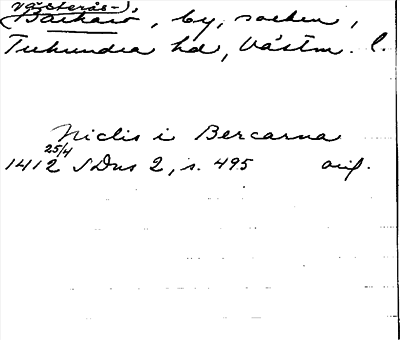 (Västerås-),
Barkarö, by, socken,
Tuhundra hd, Västm. l.
Niclis i Bercarna
25/4
1412 SDns 2, s. 495 avf.